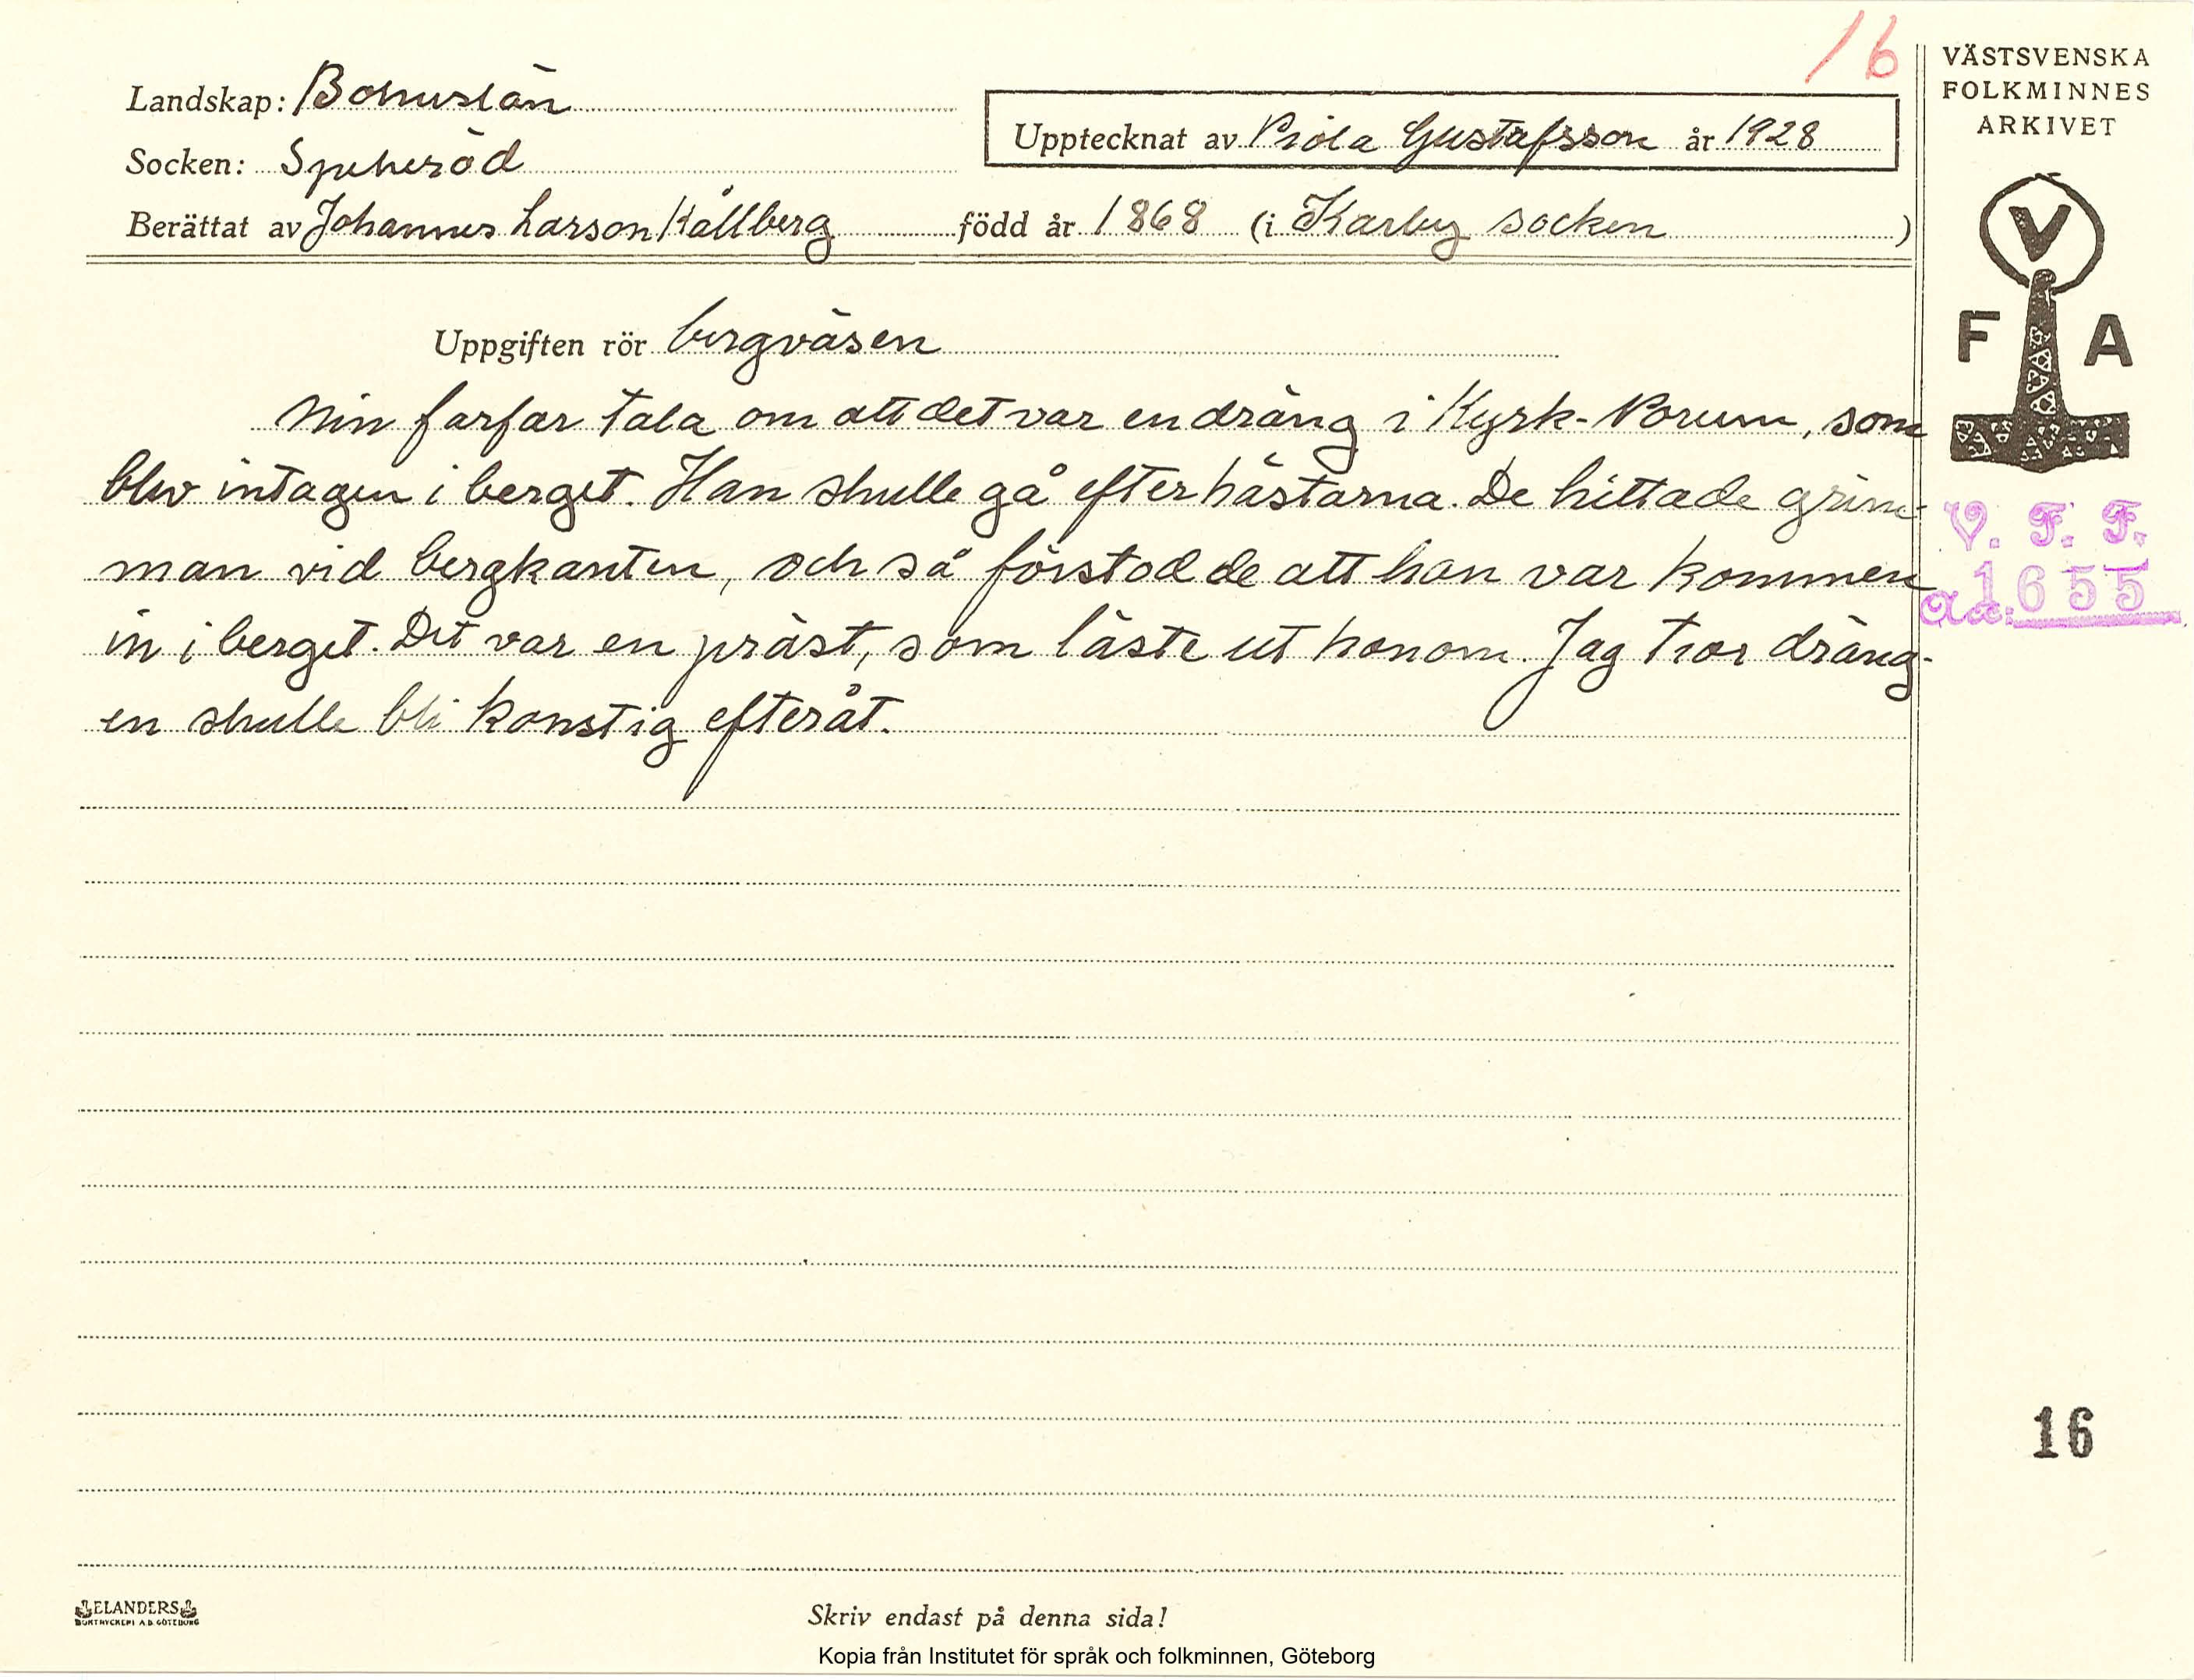 16
VÄSTSVENSKA
FOLKMINNES
ARKIVET
Landskap: Bohuslän
Upptecknat av Viola Gustafsson år 1928
Socken: Spekeröd
Berättat av Johannes Larson Kållberg född år 1868 (i Karby socken)
V
F A
Uppgiften rör bergväsen
Min farfar tala om att det var en dräng i Kyrk-Norum, som
blev intagen i berget. Han skulle gå efter hästarna. De hittade grim-
man vid bergkanten, och så förstod de att han var kommen
in i berget. Det var en präst, som läste ut honom. Jag tror dräng-
en skulle bli konstig efteråt.
V. F. F.
1655
16
ELANDERS
BOKTRYCKERI A.B. GÖTEBORG
Skriv endast på denna sida!
Kopia från Institutet för språk och folkminnen, Göteborg